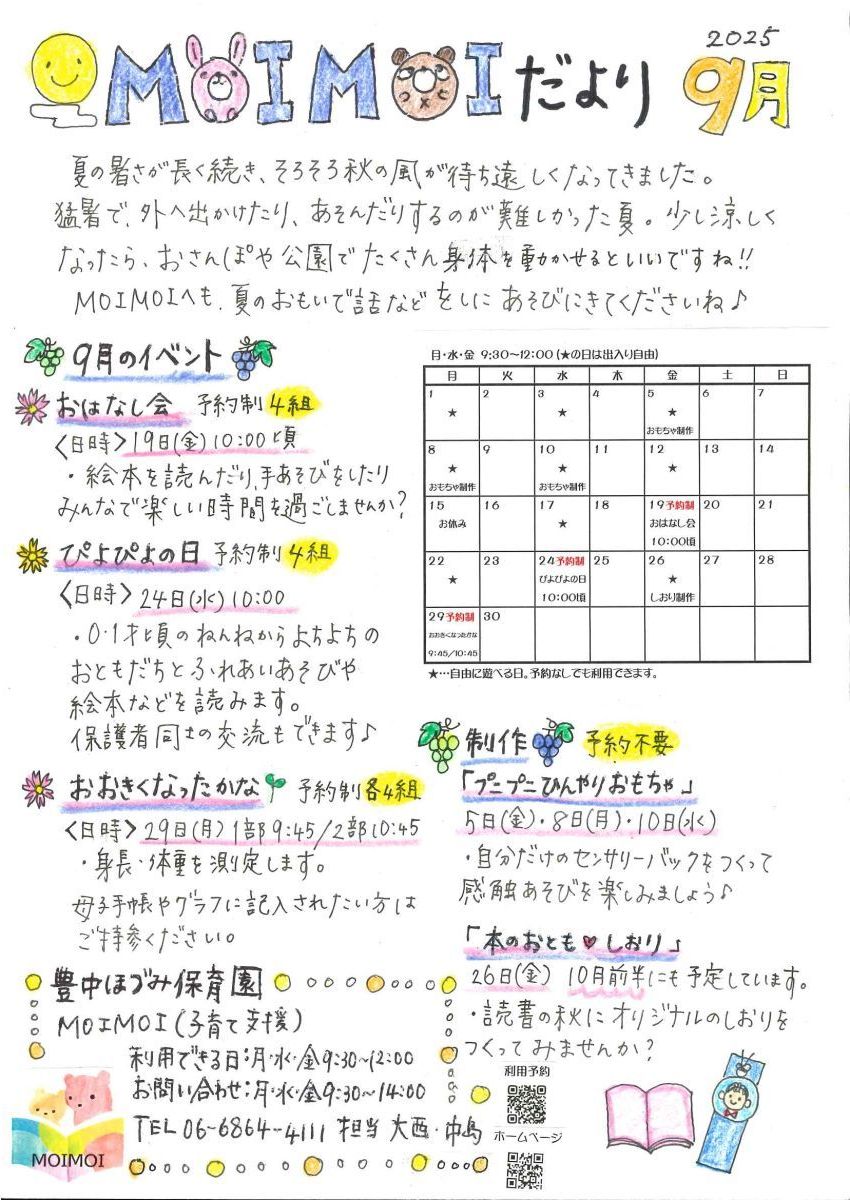 MOIMOIだより 2025 9月
夏の暑さが長く続き、そろそろ秋の風が待ち遠しくなってきました。
猛暑で、外へ出かけたり、あそんだりするのが難しかった夏。少し涼しく
なったら、おさんぽや公園でたくさん身体を動かせるといいですね!!
MOIMOIへも、夏のおもいで話などをしにあそびにきてくださいね♪
9月のイベント
おはなし会 予約制 4組
<日時> 19日(金) 10:00頃
・絵本を読んだり、手あそびをしたり
みんなで楽しい時間を過ごしませんか?
ぴよぴよの日 予約制 4組
<日時> 24日(水) 10:00
・0.1才頃のねんねからよちよちの
おともだちとふれあいあそびや
絵本などを読みます。
保護者同士の交流もできます♪
おおきくなったかな 予約制 各4組
<日時> 29日(月) 1部 9:45/2部 10:45
・身長・体重を測定します。
母子手帳やグラフに記入されたい方は
ご持参ください。
月・水・金 9:30~12:00 (★の日は出入り自由)
月 火 水 木 金 土 日
1 2 3 4 5 6 7
★ ★ ★
おもちゃ制作
8 9 10 11 12 13 14
★ ★ ★
おもちゃ制作 おもちゃ制作
15 16 17 18 19予約制 20 21
お休み ★ おはなし会
10:00頃
22 23 24予約制 25 26 27 28
★ ぴよぴよの日 ★
10:00頃 しおり制作
29予約制 30
おおきくなったかな
9:45/10:45
★…自由に遊べる日。予約なしでも利用できます。
制作 予約不要
「プニプニひんやりおもちゃ」
5日(金)・8日(月)・10日(水)
・自分だけのセンサリーバックをつくって
感触あそびを楽しみましょう♪
「本のおとも♥しおり」
26日(金) 10月前半にも予定しています。
・読書の秋にオリジナルのしおりを
つくってみませんか?
豊中ほづみ保育園
MOIMOI(子育て支援)
利用できる日:月・水・金 9:30~12:00
お問い合わせ:月・水・金 9:30~14:00
TEL 06-6864-4111 担当 大西・中島
MOIMOI
利用予約
ホームページ